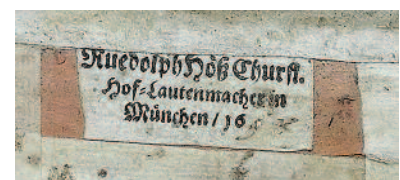 Ruedolph Höß Churfl.
Hof-Lautenmacher in
München / 16